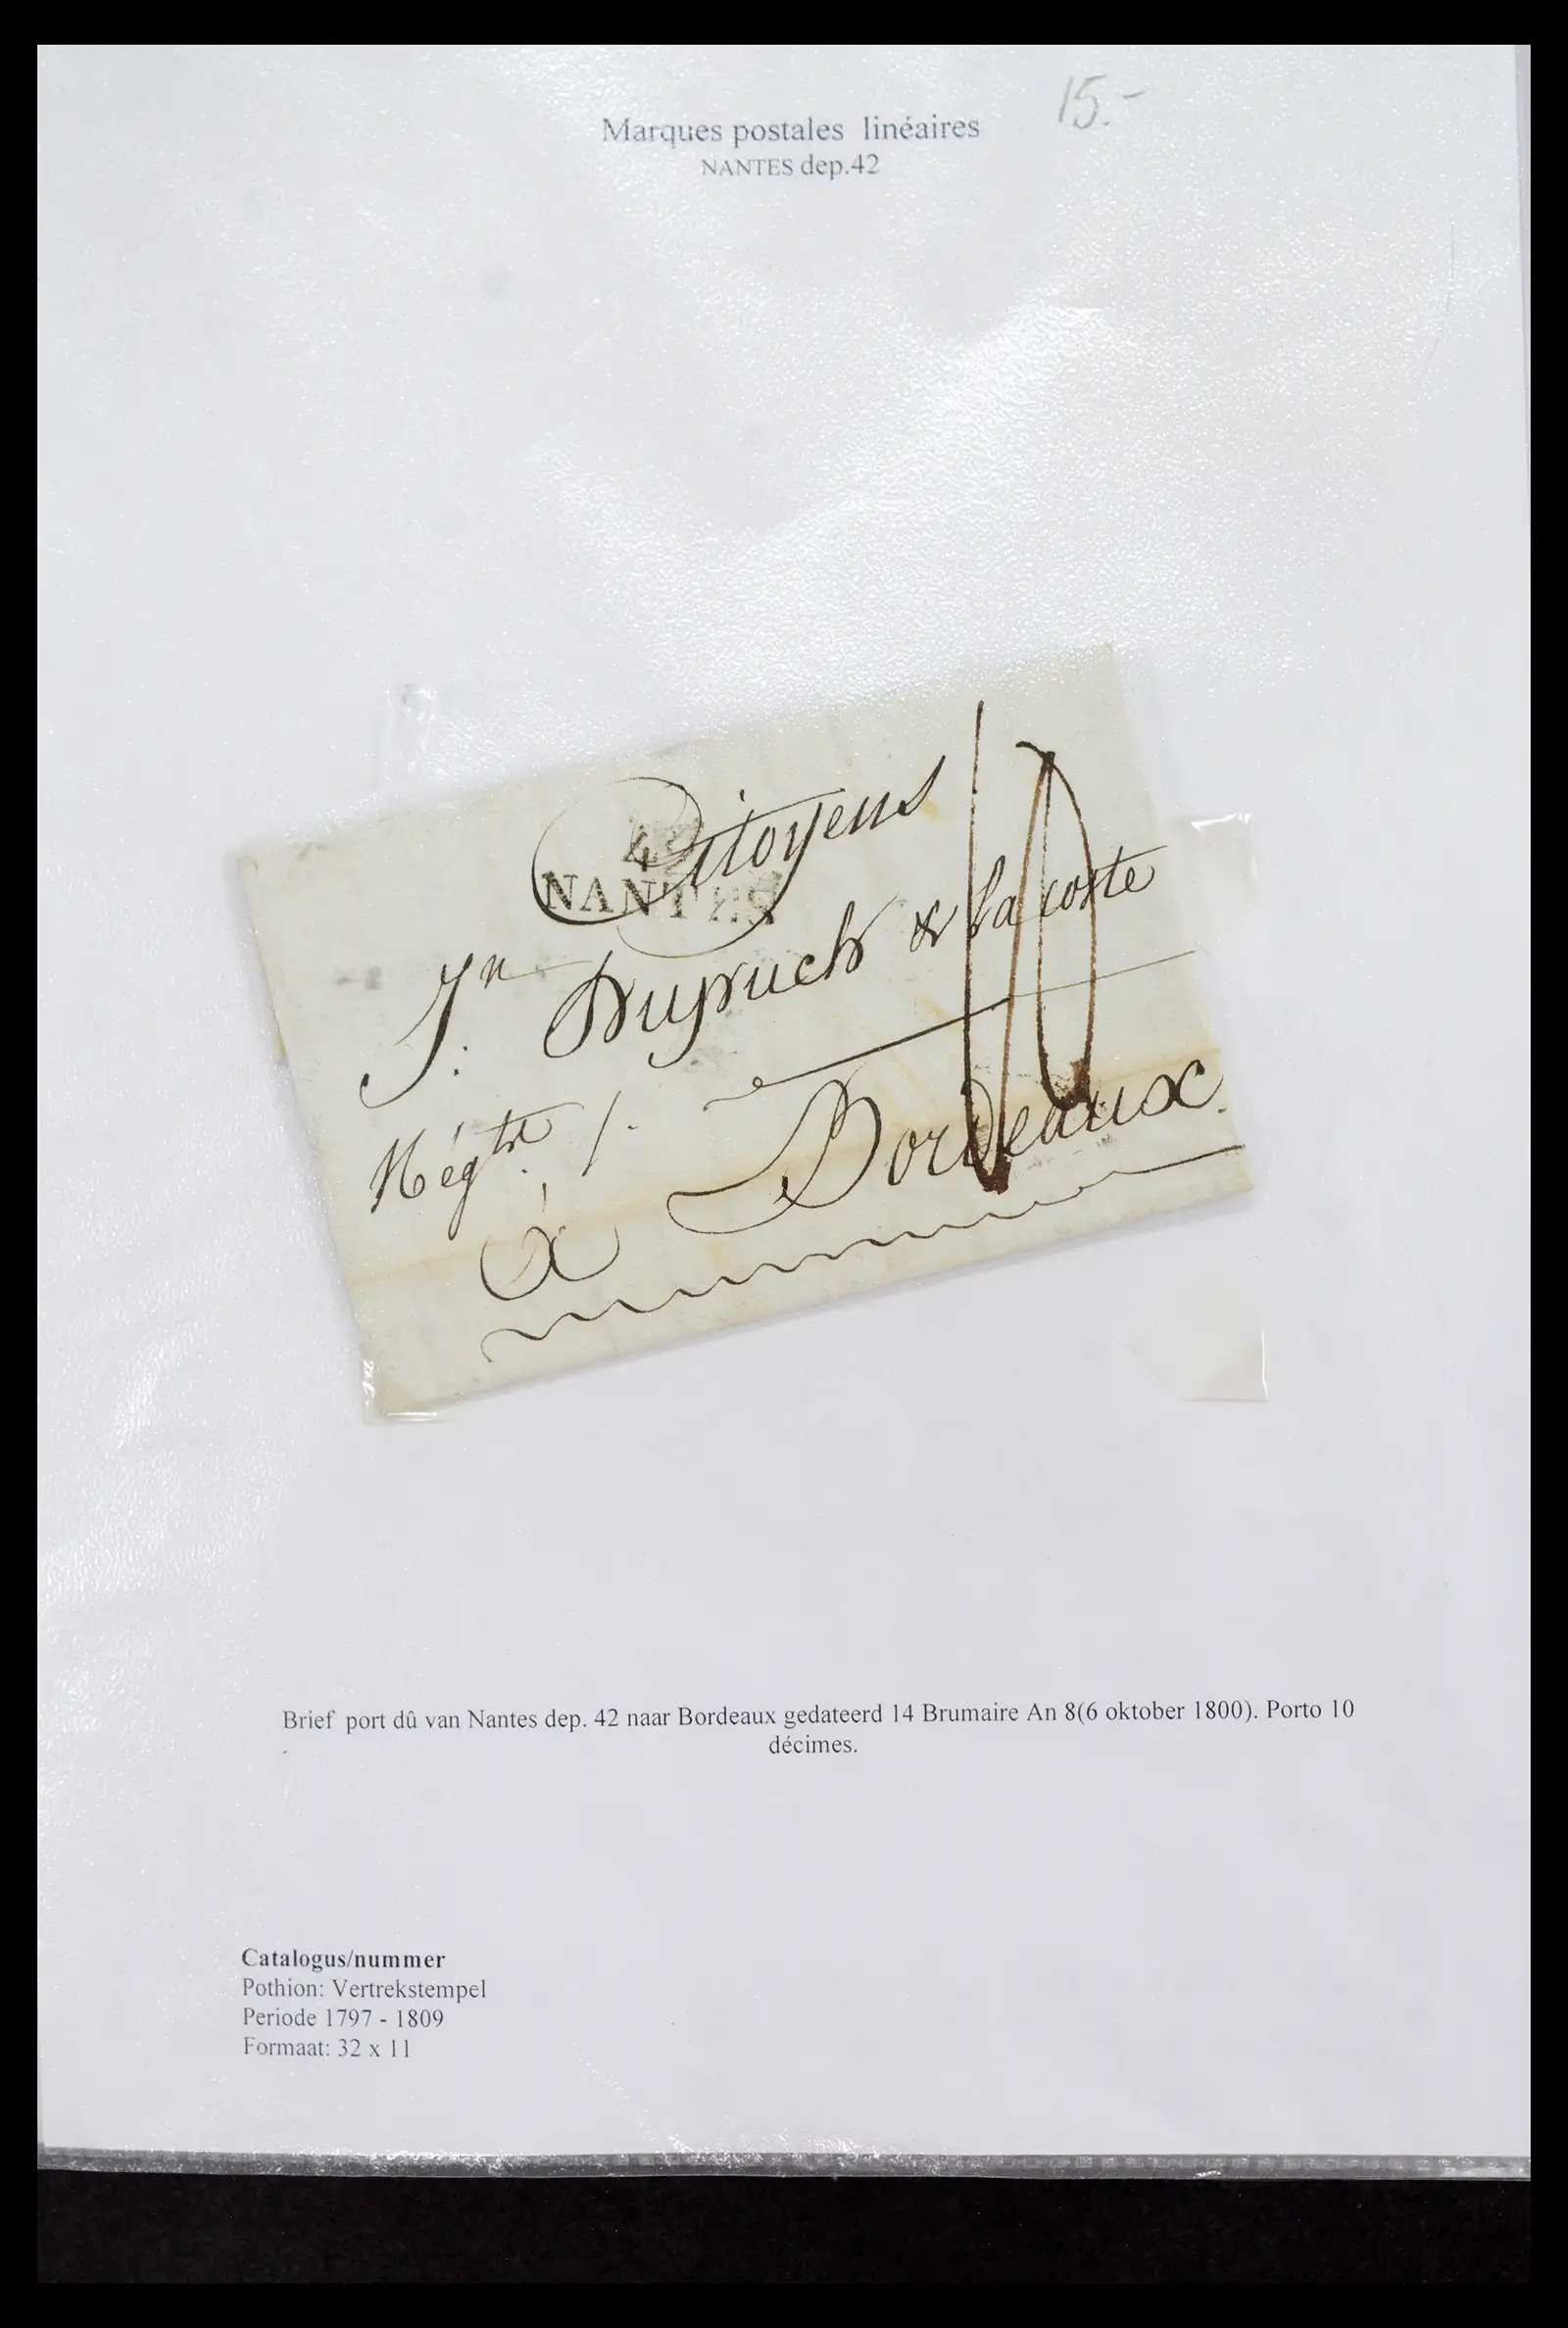 Marques postales linéaires 15.-
NANTES dep.42
Citoyens
42
NANTES
Jn. & Lacoste
Négts /.
à Bordeaux.
10
Brief port dû van Nantes dep. 42 naar Bordeaux gedateerd 14 Brumaire An 8(6 oktober 1800). Porto 10
décimes.
Catalogus/nummer
Pothion: Vertrekstempel
Periode 1797 - 1809
Formaat: 32 x 11